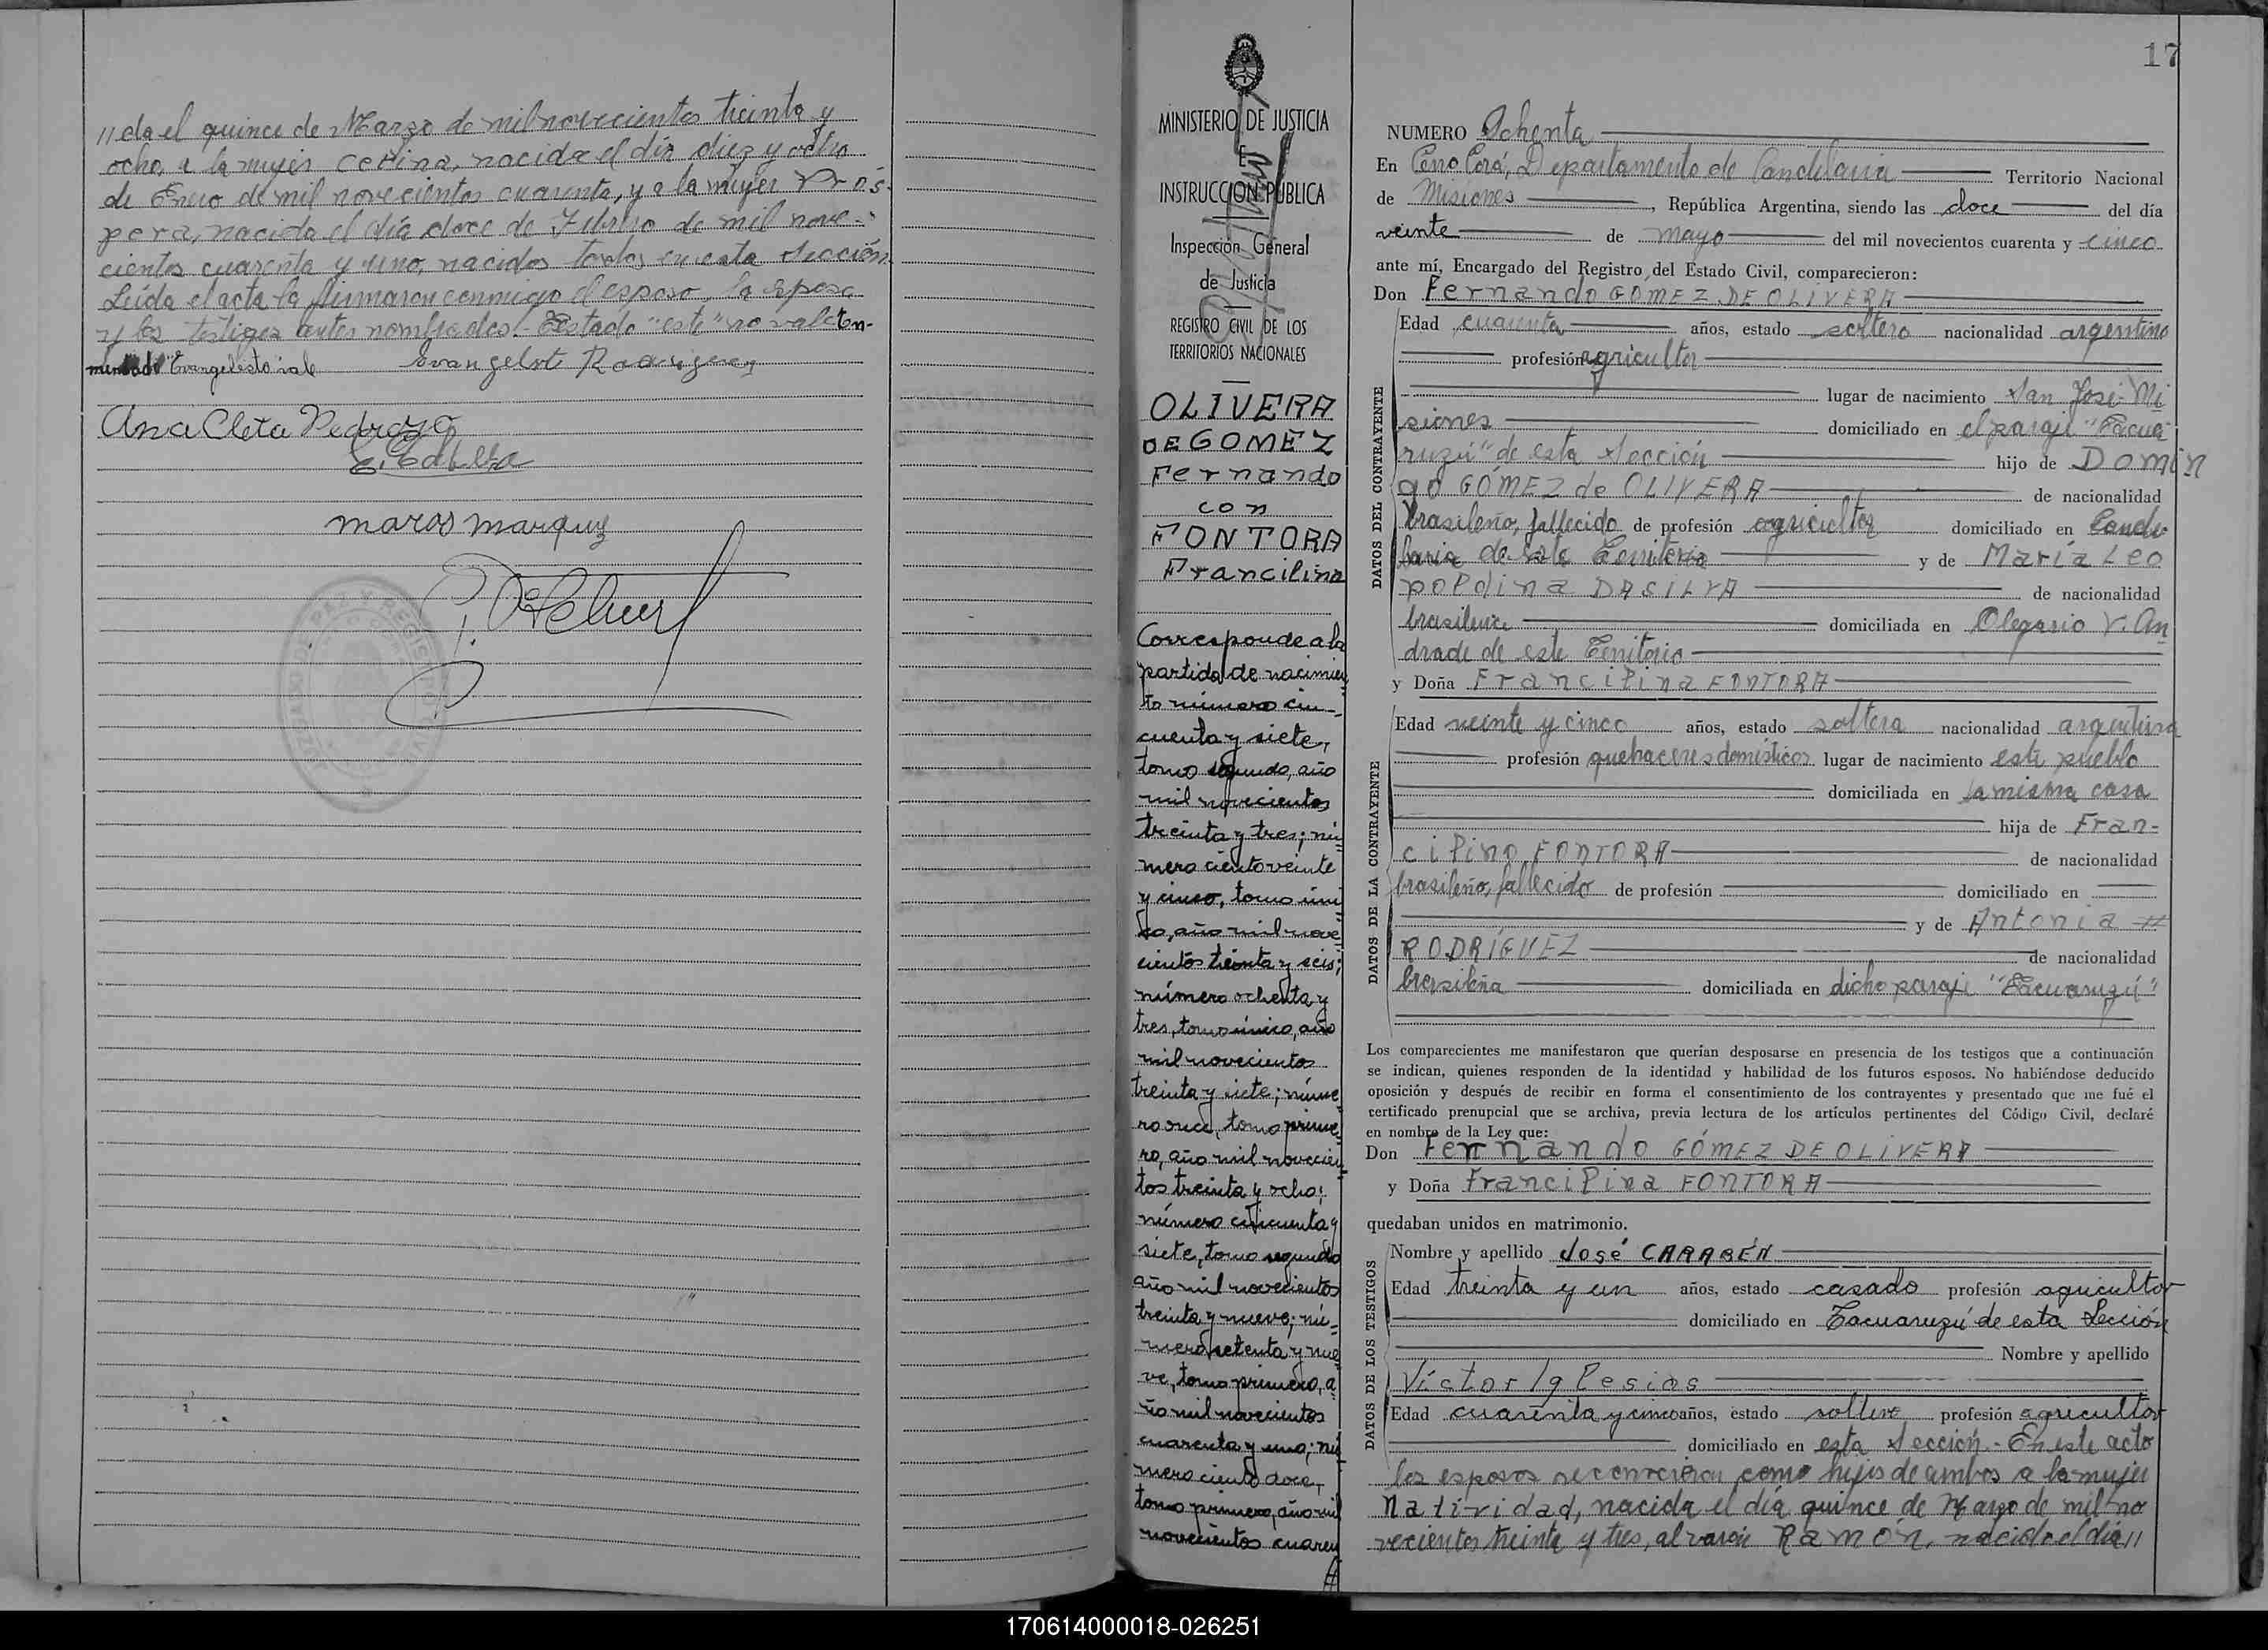 //da el quince de Marzo de mil novecientos treinta y
ocho, a la mujer Celina, nacida el día diez y ocho
de Enero de mil novecientos cuarenta, y a la mujer Prós-
pera, nacida el día doce de Febrero de mil nove-
cientos cuarenta y uno, nacidos todos en esta Sección.
Leída el acta la firmaron conmigo el esposo, la esposa
y los testigos antes nombrados.- Testado "este" no vale En-
mendado "Evangelisto vale Evangelisto Rodriguez
Ana Cleta Pedrozo
E. Cabrera
marcos marquez
JUZGADO DE PAZ Y REGISTRO CIVIL
17
MINISTERIO DE JUSTICIA
E
INSTRUCCION PUBLICA
Inspección General
de Justicia
REGISTRO CIVIL DE LOS
TERRITORIOS NACIONALES
OLIVERA
DE GOMEZ
Fernando
con
FONTORA
Francilina
Corresponde a la
partida de nacimien
to número cin-
cuenta y siete,
tomo segundo, año
mil novecientos
treinta y tres; nú
mero ciento veinte
y cinco, tomo úni
co, año mil nove
cientos treinta y seis;
número ochenta y
tres, tomo único, año
mil novecientos
treinta y siete; núme
ro once, tomo prime
ro, año mil novecien
tos treinta y ocho;
número cincuenta y
siete, tomo segundo
año mil novecientos
treinta y nueve; nú-
mero setenta y nue
ve, tomo primero, a
ño mil novecientos
cuarenta y uno; nú
mero ciento doce,
tomo primero, año mil
novecientos cuaren
//
NUMERO Ochenta
En Cerro Corá, Departamento de Candelaria Territorio Nacional
de Misiones, República Argentina, siendo las doce del día
veinte de mayo del mil novecientos cuarenta y cinco
ante mí, Encargado del Registro del Estado Civil, comparecieron:
Don Fernando GOMEZ DE OLIVERA
DATOS DEL CONTRAYENTE
Edad cuarenta años, estado soltero nacionalidad argentino
profesión agricultor
lugar de nacimiento San José-Mi
siones domiciliado en el paraje "Tacua
ruzú" de esta Sección hijo de DOMIN
GO GÓMEZ de OLIVERA de nacionalidad
brasileño, fallecido de profesión agricultor domiciliado en Cande-
laria de este Territorio y de María Leo
poldina DASILVA de nacionalidad
brasilera domiciliada en Olegario V. An
drade de este Territorio
y Doña Francilina FONTORA
DATOS DE LA CONTRAYENTE
Edad veinte y cinco años, estado soltera nacionalidad argentina
profesión quehaceres domésticos lugar de nacimiento este pueblo
domiciliada en la misma casa
hija de Fran-
cilino FONTORA de nacionalidad
brasileño, fallecido de profesión domiciliado en
y de Antonia
RODRÍGUEZ de nacionalidad
brasileña domiciliada en dicho paraje "Tacuaruzú"
Los comparecientes me manifestaron que querían desposarse en presencia de los testigos que a continuación
se indican, quienes responden de la identidad y habilidad de los futuros esposos. No habiéndose deducido
oposición y después de recibir en forma el consentimiento de los contrayentes y presentado que me fué el
certificado prenupcial que se archiva, previa lectura de los artículos pertinentes del Código Civil, declaré
en nombre de la Ley que:
Don Fernando GÓMEZ DE OLIVERA
y Doña Francilina FONTORA
quedaban unidos en matrimonio.
DATOS DE LOS TESTIGOS
Nombre y apellido José CARABÉN
Edad treinta y un años, estado casado profesión agricultor
domiciliado en Tacuaruzú de esta Sección
Nombre y apellido
Víctor Iglesias
Edad cuarenta y cinco años, estado soltero profesión agricultor
domiciliado en esta Sección.- En este acto
los esposos reconocieron como hijos de ambos a la mujer
Natividad, nacida el día quince de Marzo de mil no
vecientos treinta y tres, al varón Ramón, nacido el día//
170614000018-026251